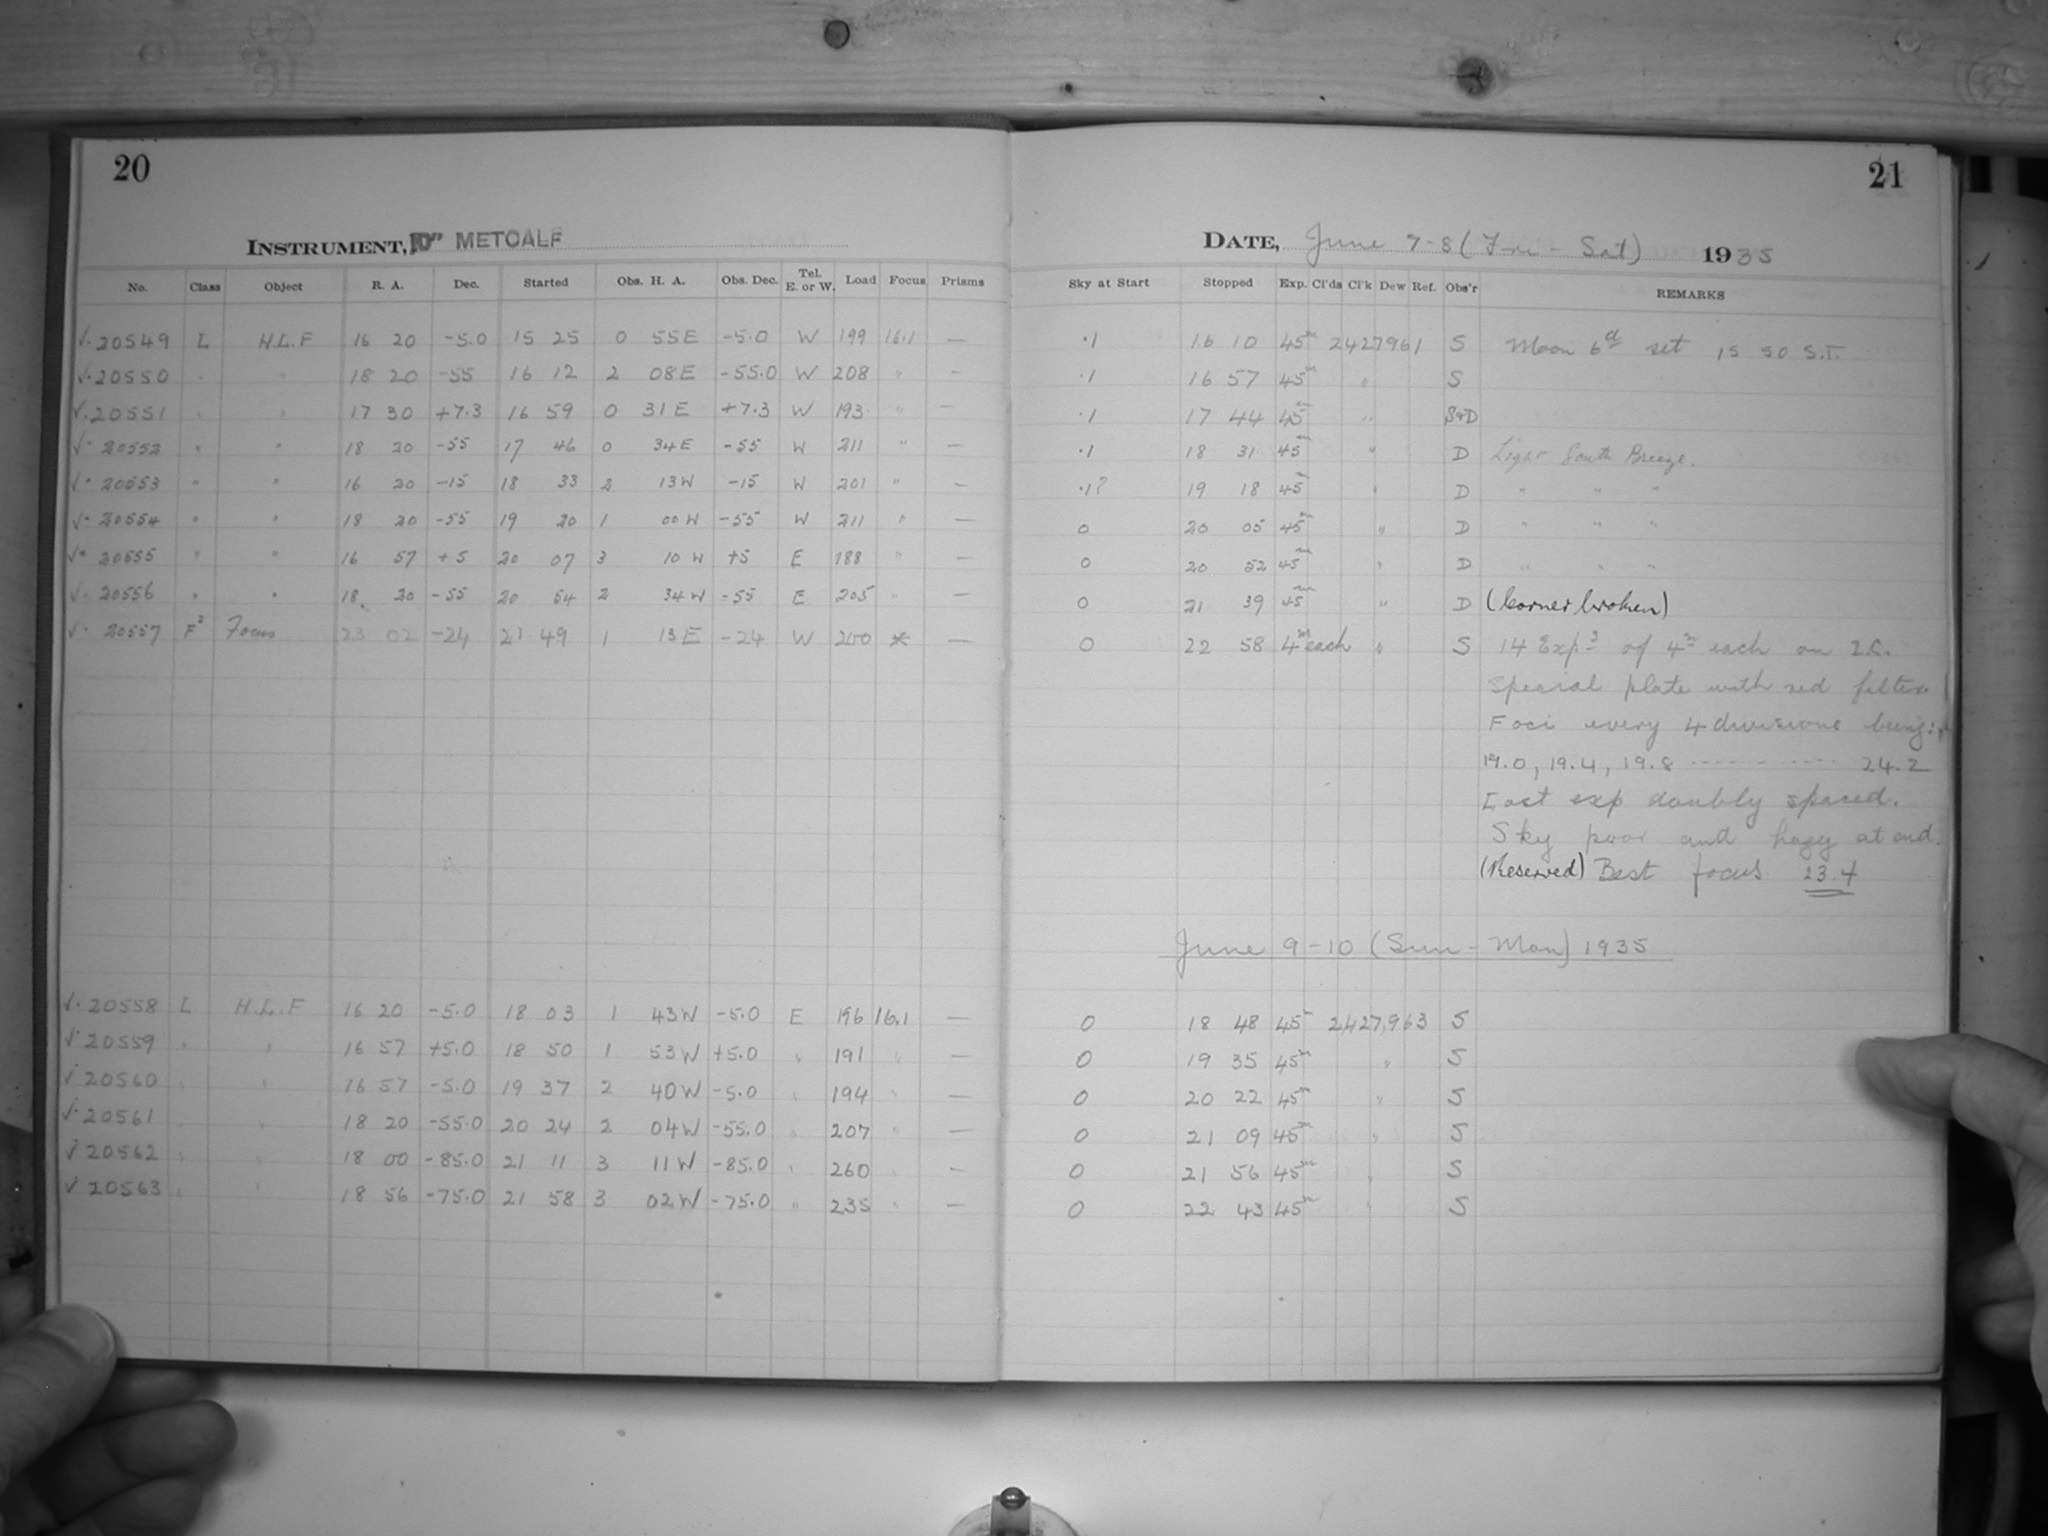 20
21
INSTRUMENT, 10" METCALF
DATE, June 7-8 (Fri - Sat) 1935
No. Class Object R. A. Dec. Started Obs. H. A. Obs. Dec. Tel. E. or W. Load Focus Prisms Sky at Start Stopped Exp. Cl'ds Cl'k Dew Ref. Obs'r REMARKS
√· 20549 L H.L.F 16 20 -5.0 15 25 0 55E -5.0 W 199 16.1 — ·1 16 10 45m 2427961 S Moon 6d set 15 50 S.T.
√· 20550 " " 18 20 -55 16 12 2 08E -55.0 W 208 " — ·1 16 57 45m " S
√· 20551 " " 17 30 +7.3 16 59 0 31E +7.3 W 193 " — ·1 17 44 45m " S+D
√· 20552 " " 18 20 -55 17 46 0 34E -55 W 211 " — ·1 18 31 45m " D Light South Breeze.
√· 20553 " " 16 20 -15 18 33 2 13W -15 W 201 " — ·1? 19 18 45m " D " " "
√· 20554 " " 18 20 -55 19 20 1 00W -55 W 211 " — 0 20 05 45m " D " " "
√· 20555 " " 16 57 +5 20 07 3 10W +5 E 188 " — 0 20 52 45m " D " " "
√· 20556 " " 18 20 -55 20 54 2 34W -55 E 205 " — 0 21 39 45m " D (Corner broken)
√· 20557 F2 Focus 23 02 -24 21 49 1 13E -24 W 200 * — 0 22 58 4m each " S 14 Exps of 4m each on I.C.
Special plate with red filter
Foci every 4 divisions being:-
19.0, 19.4, 19.8 ---------- 24.2
Last exp doubly spaced.
Sky poor and hazy at end.
(Reserved) Best focus 23.4
June 9-10 (Sun - Mon) 1935
√· 20558 L H.L.F 16 20 -5.0 18 03 1 43W -5.0 E 196 16.1 — 0 18 48 45m 2427,963 S
√· 20559 " " 16 57 +5.0 18 50 1 53W +5.0 " 191 " — 0 19 35 45m " S
√· 20560 " " 16 57 -5.0 19 37 2 40W -5.0 " 194 " — 0 20 22 45m " S
√· 20561 " " 18 20 -55.0 20 24 2 04W -55.0 " 207 " — 0 21 09 45m " S
√· 20562 " " 18 00 -85.0 21 11 3 11W -85.0 " 260 " — 0 21 56 45m " S
√· 20563 " " 18 56 -75.0 21 58 3 02W -75.0 " 235 " — 0 22 43 45m " S